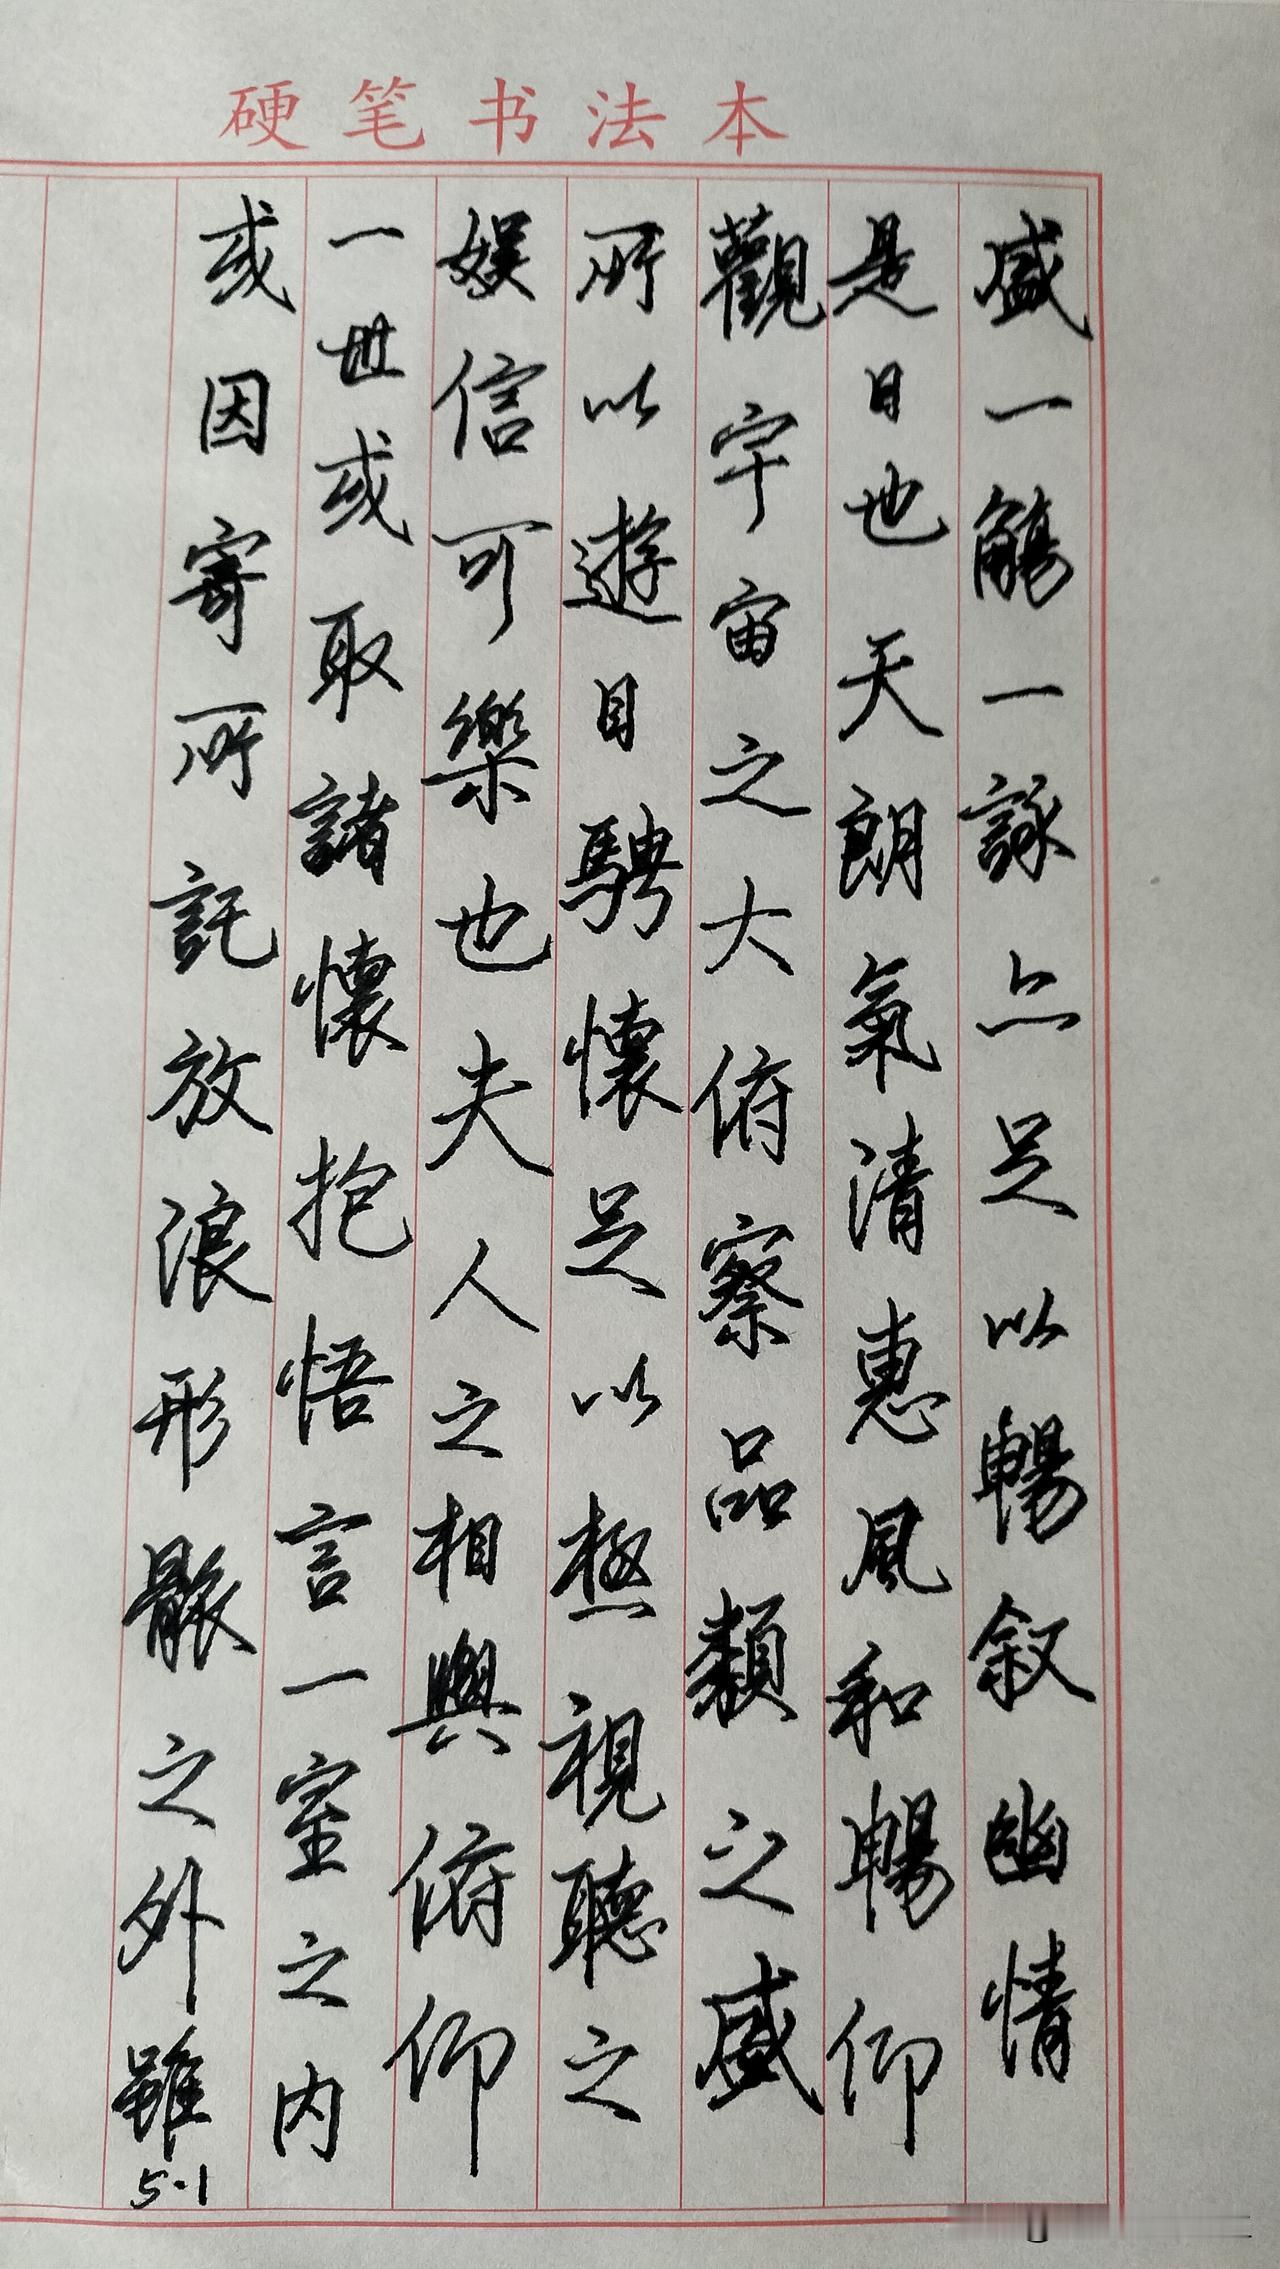 硬笔书法本
盛一觴一詠亦足以暢叙幽情
是日也天朗氣清惠風和暢仰
觀宇宙之大俯察品類之盛
所以遊目騁懷足以極視聽之
娱信可樂也夫人之相與俯仰
一世或取諸懷抱悟言一室之内
或因寄所託放浪形骸之外雖
5·1